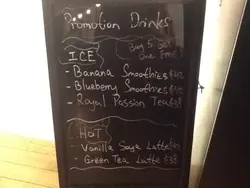 Promotion Drinks
ICE
Buy 5 Get
One Free
- Banana Smoothies
- Blueberry Smoothies
- Royal Passion Tea
HOT
- Vanilla Soya Latte
- Green Tea Latte